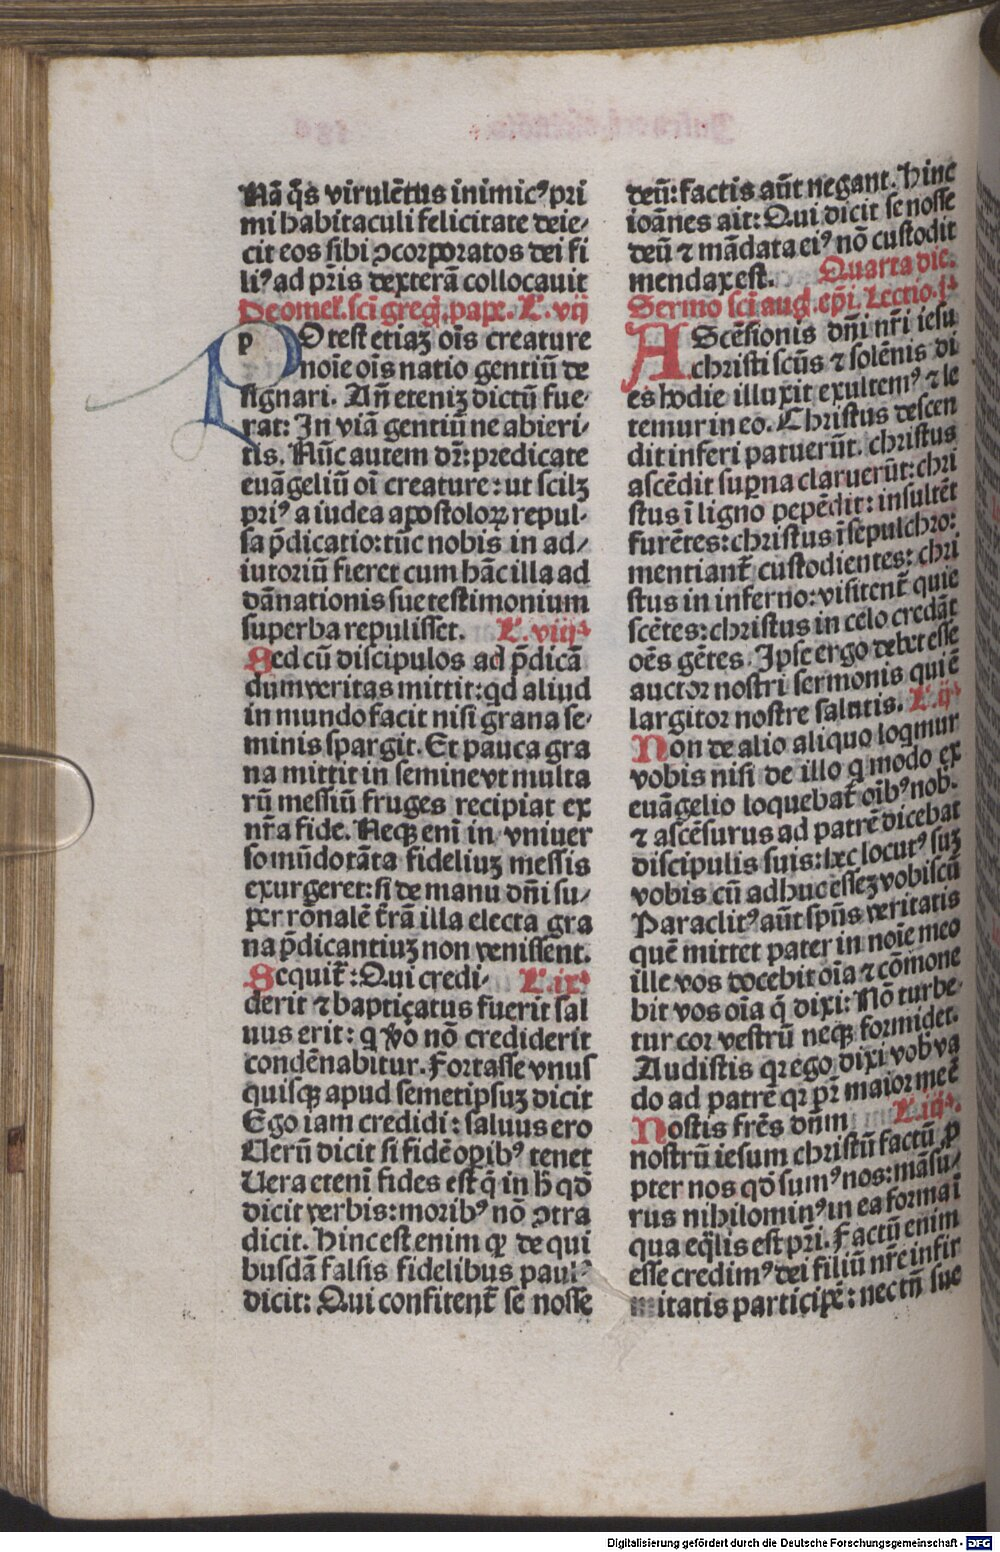 Nã q̃s virulẽtus inimicꝰ pri
mi habitaculi felicitate deie-
cit eos sibi ꝯcorporatos dei fi
liꝰ ad pr̃is dexterã collocauit
De omel'. sci greg̃. pape. L'. vij
POtest etiaꝫ oĩs creature
noĩe oĩs natio gentiũ de
signari. Añ eteniꝫ dictũ fue-
rat: In viã gentiũ ne abieri-
tis. Nũc autem dr̃: predicate
euãgeliũ oĩ creature: ut scilꝫ
priꝰ a iudea apostoloꝝ repul-
sa p̃dicatio: tũc nobis in ad-
iutoriũ fieret cum hãc illa ad
dãnationis sue testimonium
superba repulisset. L'. viijª
Sed cũ discipulos ad p̃dicã
dum veritas mittit: qd aliud
in mundo facit nisi grana se-
minis spargit. Et pauca gra
na mittit in semine vt multa
rũ messiũ fruges recipiat ex
nr̃a fide. Neqꝫ enĩ in vniuer
so mũdo tãta fideliuꝫ messis
exurgeret: si de manu dñi su-
per rõnalẽ t̃rã illa electa gra
na p̃dicantiuꝫ non venissent.
Sequit̃: Qui credi- L'. ixª
derit ⁊ baptiçatus fuerit sal
uus erit: q ṽo nõ crediderit
condẽnabitur. Fortasse vnus
quisqꝫ apud semetipsuꝫ dicit
Ego iam credidi: saluus ero
Verũ dicit si fidẽ opibꝰ tenet
Vera etenĩ fides est q̃ in h̃ qđ
dicit verbis: moribꝰ nõ ꝯtra
dicit. Hinc est enim qꝙ de qui
busdã falsis fidelibus paulꝰ
dicit: Qui confitent̃ se nosse
deũ: factis aũt negant. Hinc
ioãnes ait: Qui dicit se nosse
deũ ⁊ mãdata eiꝰ nõ custodit
mendax est. Quarta die.
Sermo sci aug̃. ep̃i. Lectio. jª
AScẽsionis dñi nr̃i iesu
christi scũs ⁊ solẽnis di
es hodie illuxit exultemꝰ ⁊ le
temur in eo. Christus descen
dit inferi patuerũt. christus
ascẽdit supna claruerũt: chri
stus ĩ ligno pepẽdit: insultẽt
furẽtes: christus ĩ sepulchro:
mentiant̃ custodientes: chri
stus in inferno: visitent̃ quie
scẽtes: christus in celo credãt
oẽs gẽtes. Ipse ergo debet esse
auctor nostri sermonis qui ẽ
largitor nostre salutis. L'. ijª
Non de alio aliquo loqmur
vobis nisi de illo q modo ex
euãgelio loquebat̃ oĩbꝰ nob.
⁊ ascẽsurus ad patrẽ dicebat
discipulis suis: hec locutꝰ suꝫ
vobis cũ adhuc essẽ vobiscũ
Paraclitꝰ aũt spũs veritatis
quẽ mittet pater in noĩe meo
ille vos docebit oĩa ⁊ cõmone
bit vos oĩa q̃ dixi: Nõ turbe-
tur cor vestrũ neqꝫ formidet.
Audistis qr ego dixi vob va
do ad patrẽ qr pr̃ maior me ẽ
Nostis frẽs dñm L'. iijª.
nostrũ iesum christũ factũ ꝓ
pter nos qđ sumꝰ nos: mãsu-
rus nihilominꝰ in ea forma ĩ
qua eq̃lis est pr̃i. Factũ enim
esse credimꝰ dei filiũ nr̃e infir
mitatis participẽ: nec tñ sue